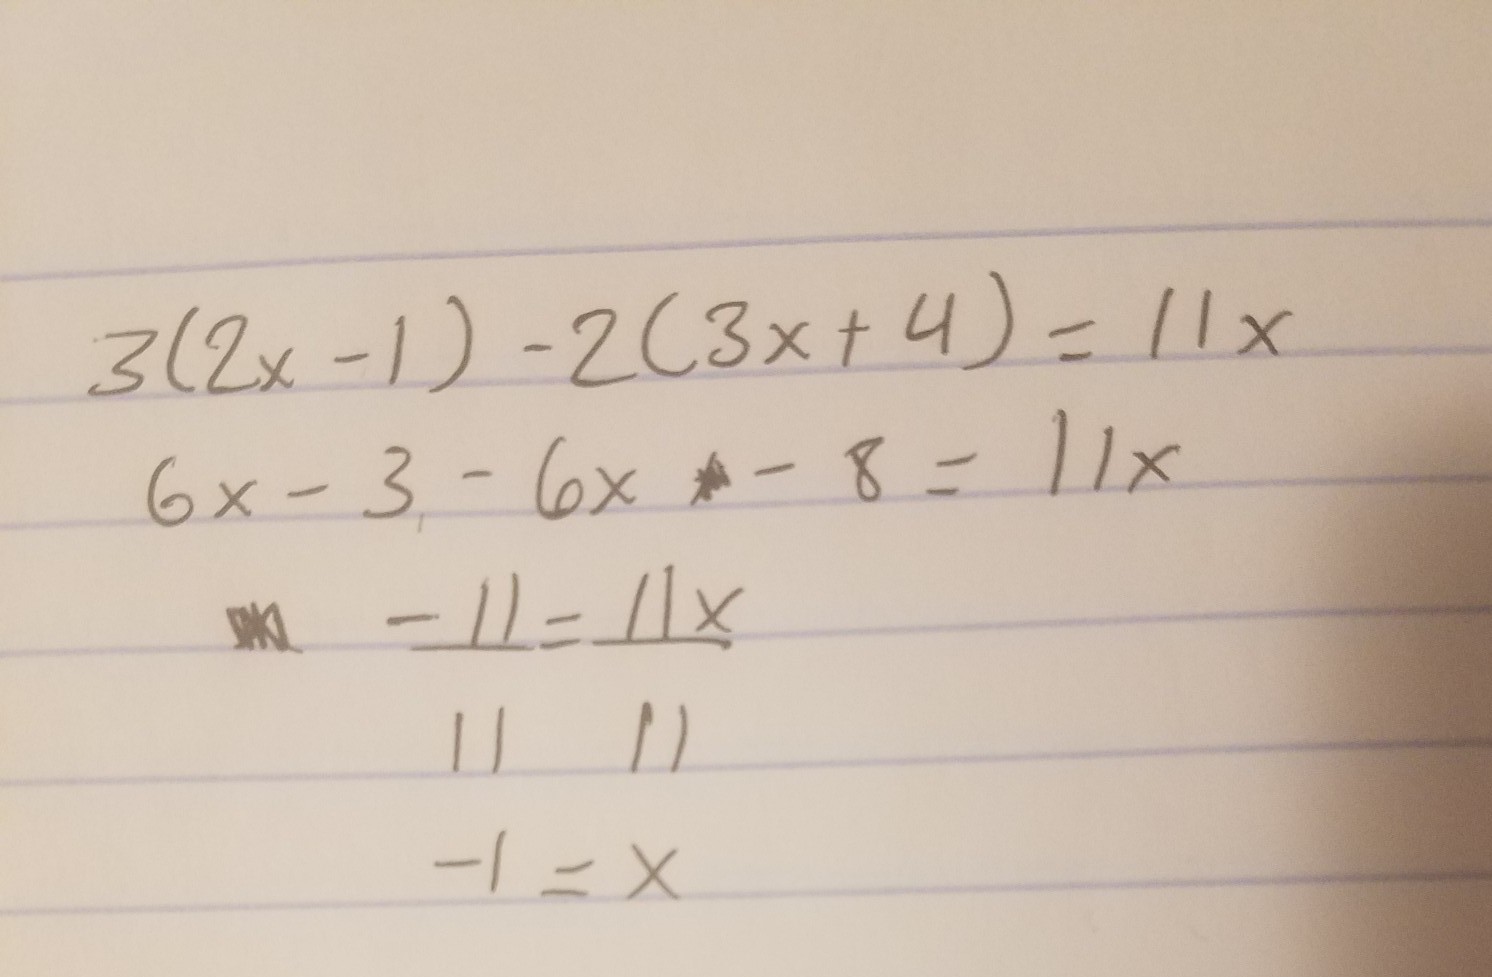 3(2x - 1) - 2(3x + 4) = 11x
6x - 3 - 6x - 8 = 11x
-11 = 11x
11 11
-1 = x